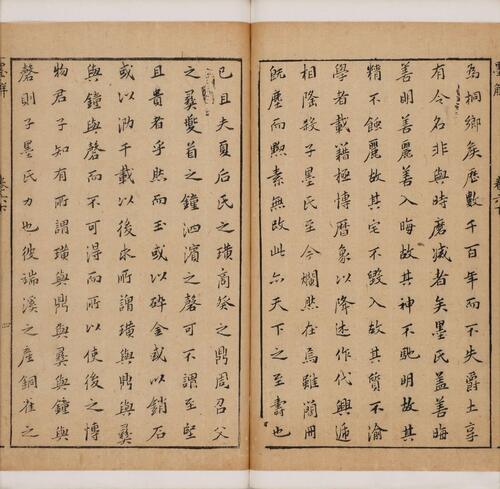 爲桐鄉矣歷數千百年而不失爵土享
有令名非與時磨滅者矣墨氏蓋善晦
善明善麗善入晦故其神不馳明故其
精不蝕麗故其宅不毀入故其質不渝
學者載籍極博曆象以降述作代興遞
相隆殺子墨氏至今爛然在焉雖蘭冊
旣塵而煦素無故此亦天下之至壽也
已且夫夏后氏之璜商癸之鼎周召父
之彝夔首之鐘泗濱之磬可不謂至堅
且貴者乎然而玉或以碎金或以銷石
或以泐千載以後求所謂璜與鼎與彝
與鐘與磬而不可得而所以使後之博
物君子知有所謂璜與鼎與彝與鐘與
磬則子墨氏力也彼端溪之產銅雀之
墨解
卷之六
四